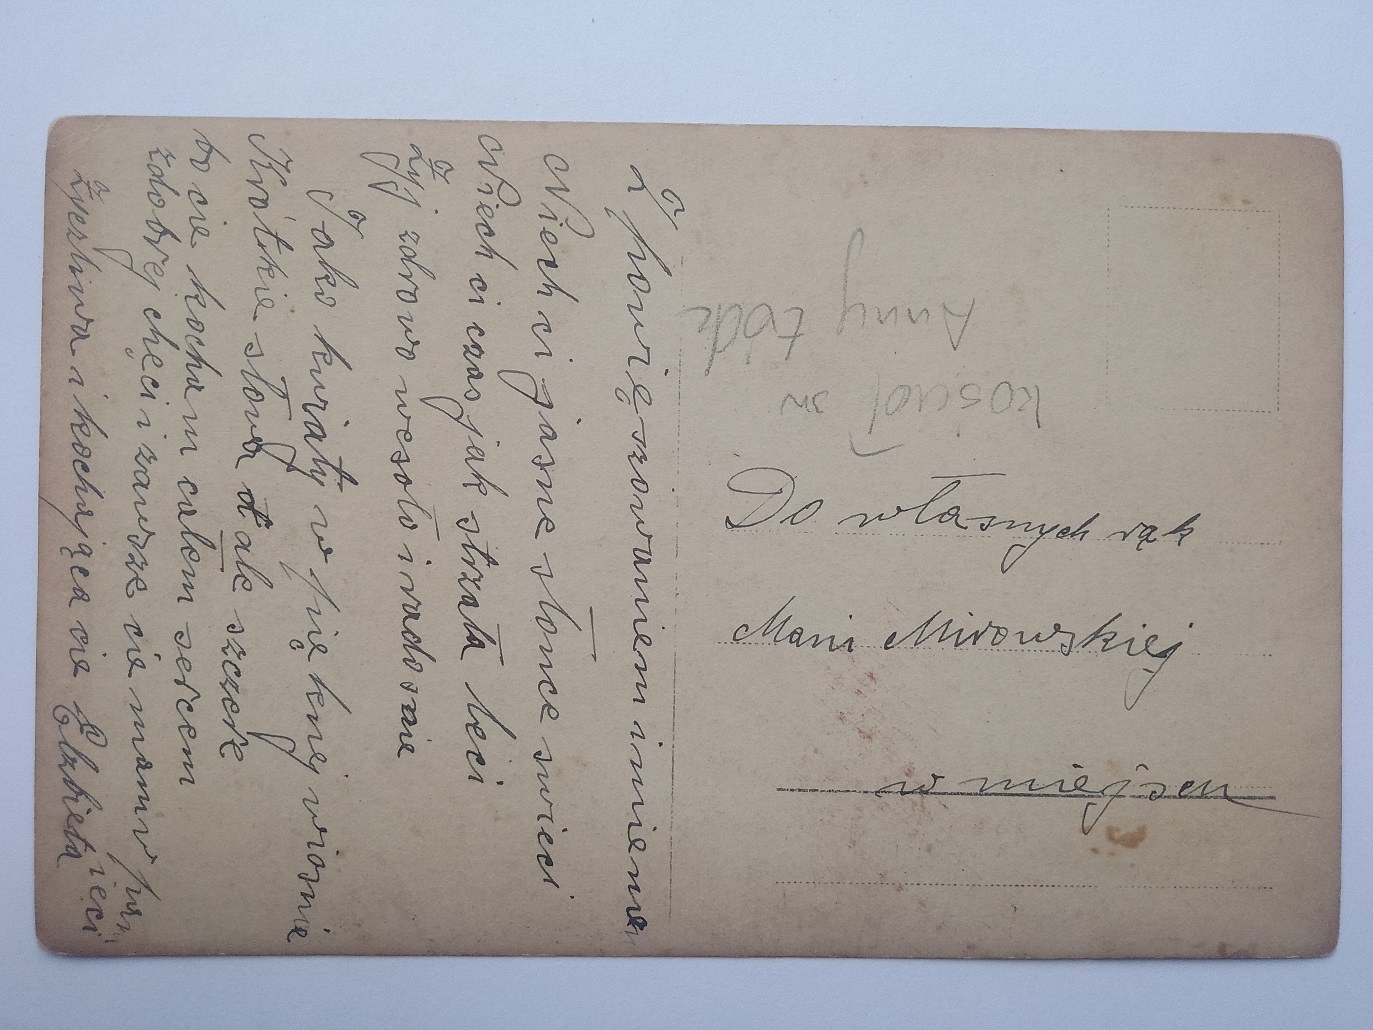 Z powięszowaniem imienin
Niech ci jasne słonce swieci
Niech ci czas jak strzała leci
Żyj zdrowo wesoło i radosnie
Jako kwiaty w pięknej wiosnie
Krótkie słowa ale szczere
bo cie kocham całem sercem
zdobrej chęci i zawsze cie mam w pamięci
życzliwa i kochająca cie Elzbieta
kościoł sw
Anny Łódź
Do własnych rąk
Marii Mirowskiej
w miejscu